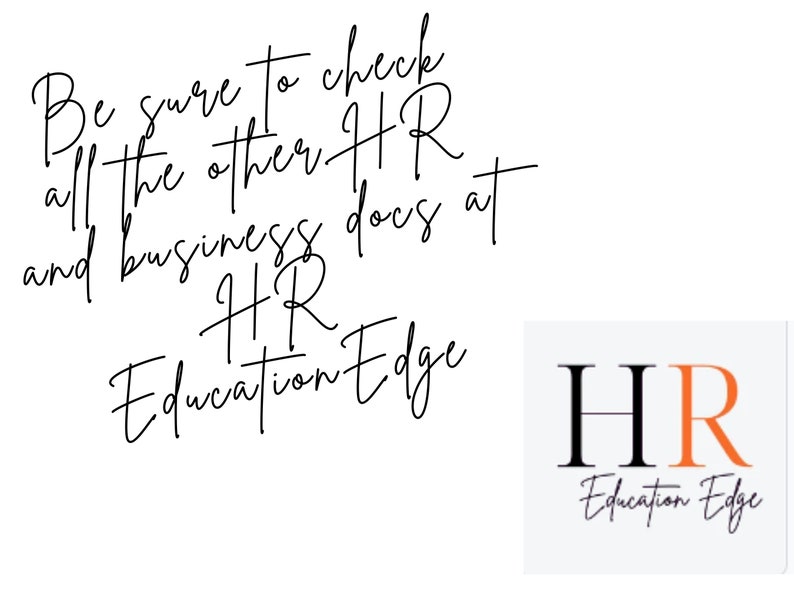 Be sure to check
all the other HR
and business docs at
HR
Education Edge
HR
Education Edge